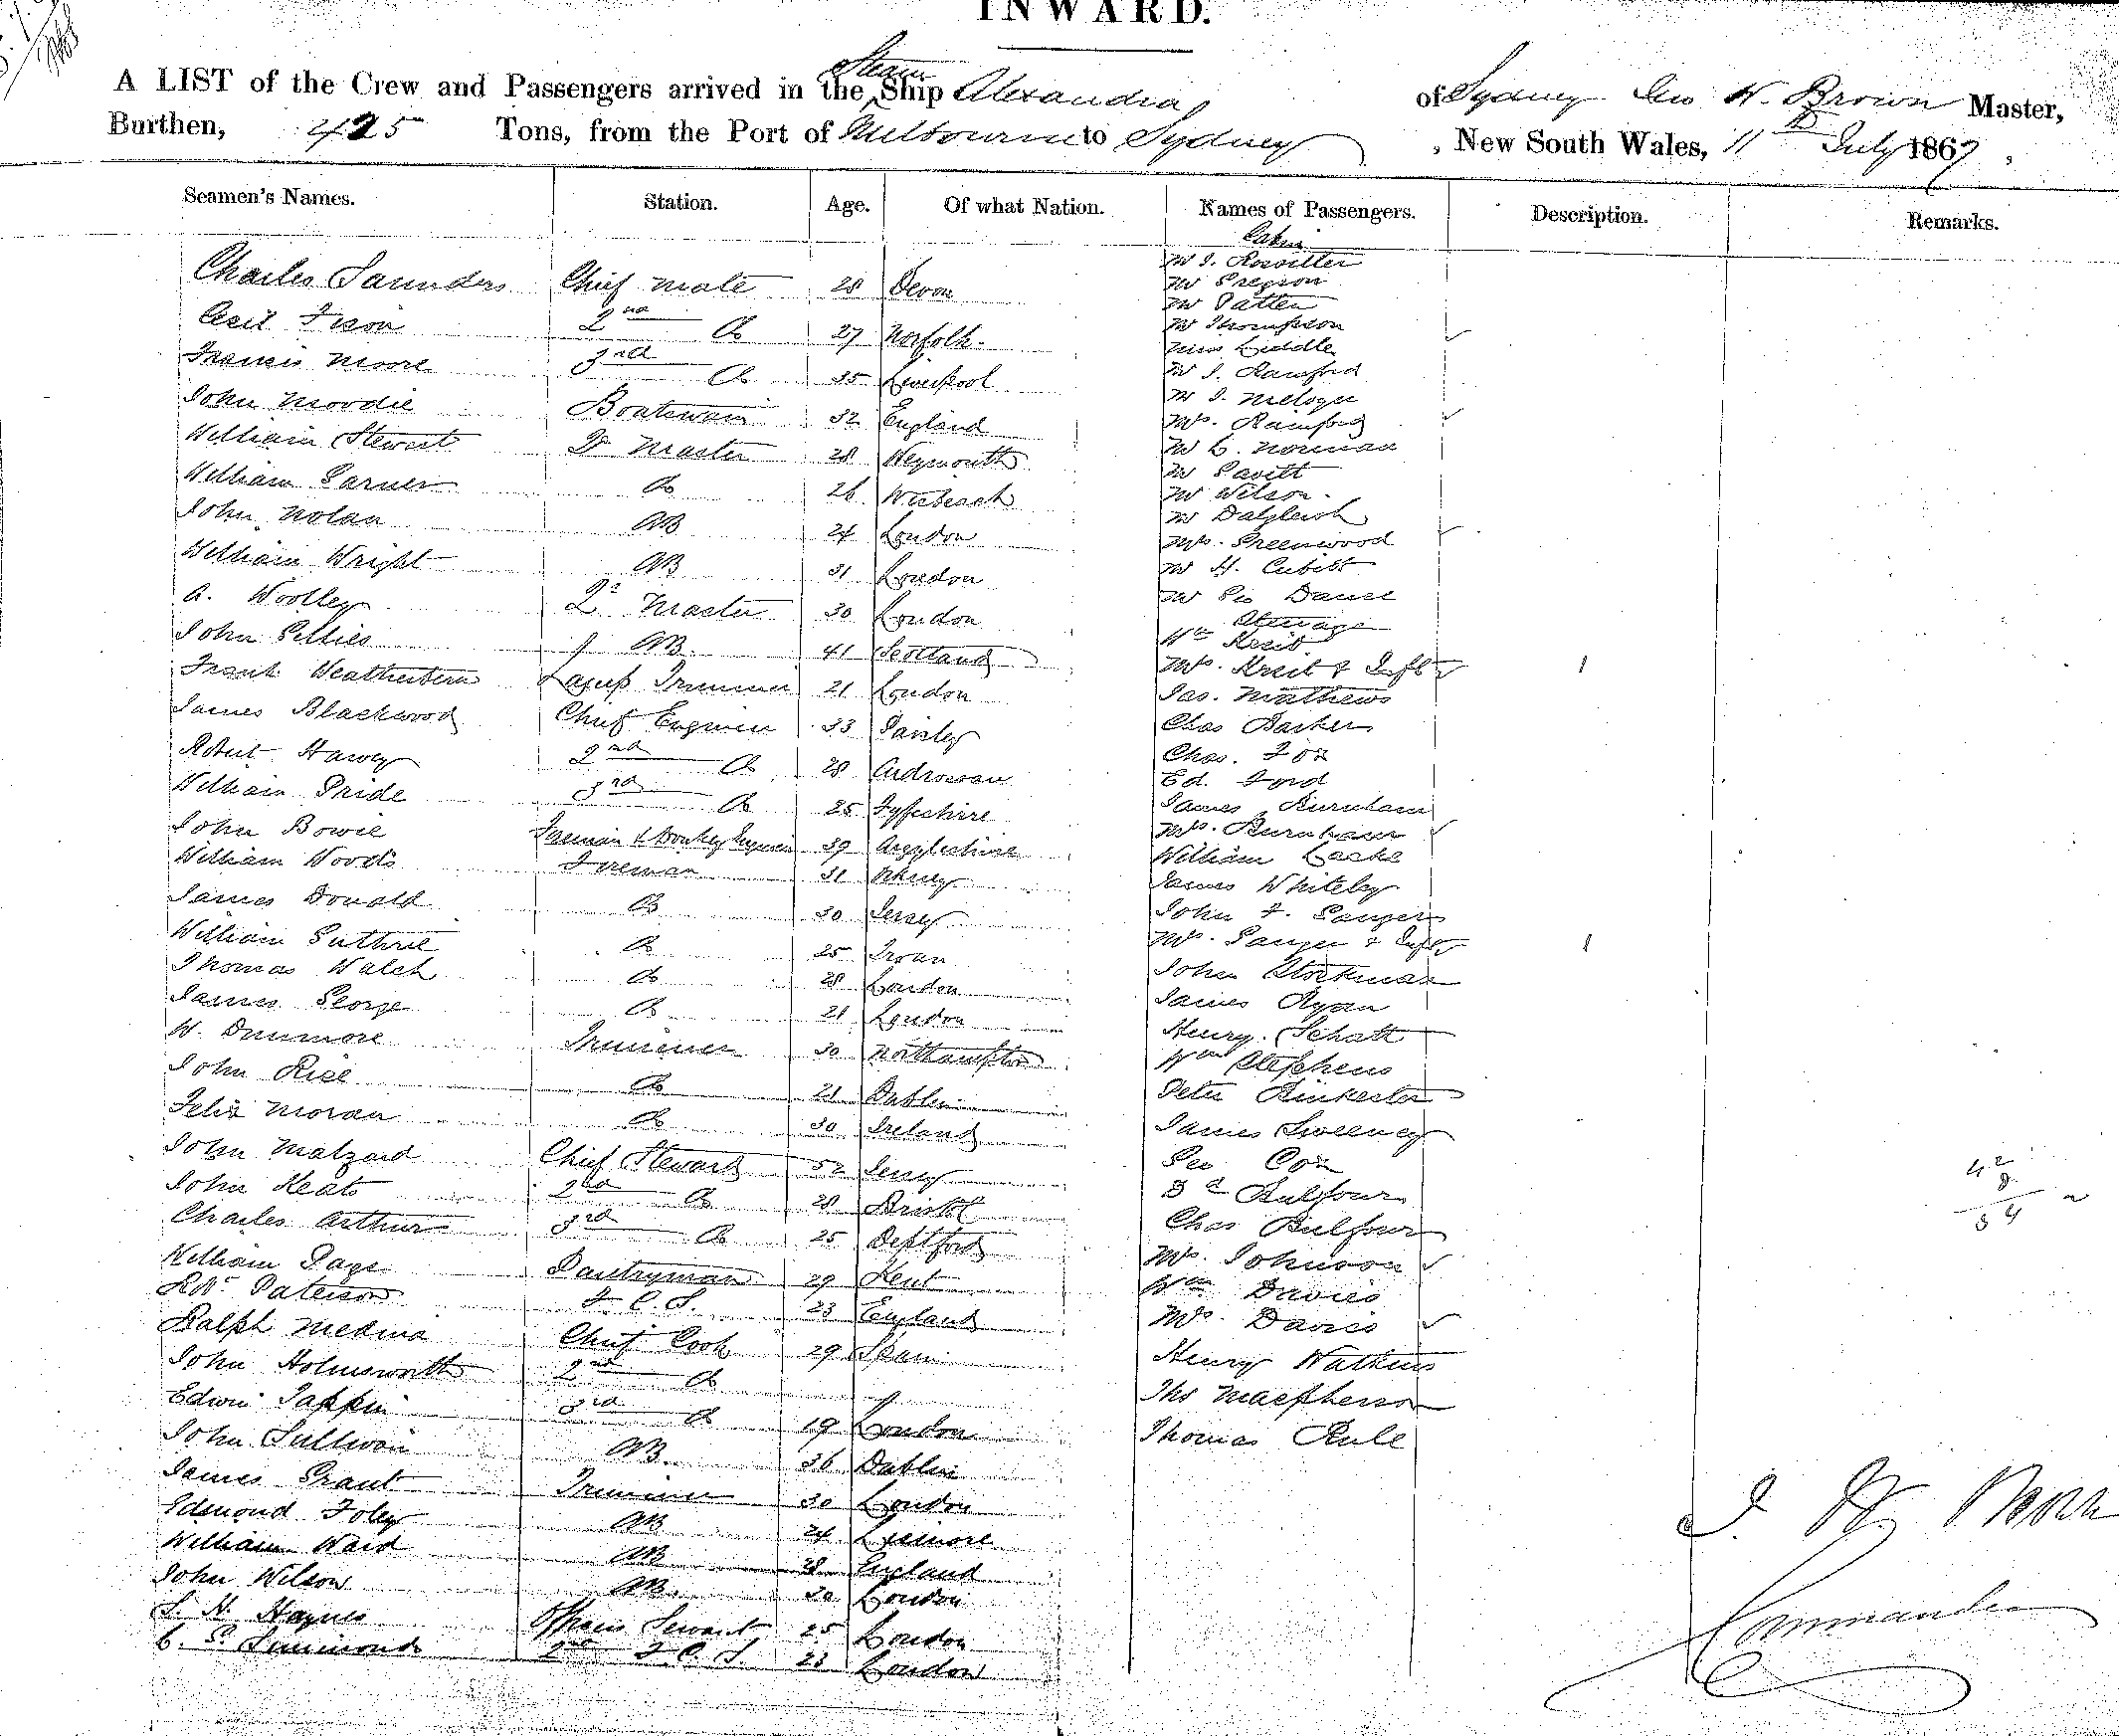 INWARD.
A LIST of the Crew and Passengers arrived in the Steam Ship Alexandra of Sydney Geo W. Brown Master,
Burthen, 425 Tons, from the Port of Melbourne to Sydney , New South Wales, 11th July 1867 ,
Seamen's Names. Station. Age. Of what Nation. Names of Passengers. Description. Remarks.
Charles Saunders Chief Mate 28 Devon
Cecil Fison 2nd Do 27 Norfolk
Francis Moore 3rd Do 35 Liverpool
John Moodie Boatswain 32 England
William Stewart Qr Master 28 Weymouth
William Garner Do 26 Wisbeach
John Nolan AB 24 London
William Wright AB 31 London
A. Woolley Qr Master 30 London
John Gillies AB 41 Scotland
Frank Weatherburn Lamp Trimmer 21 London
James Blackwood Chief Engineer 33 Paisley
Robert Harvey 2nd Do 28 Ardrossan
William Pride 3rd Do 25 Fyfeshire
John Bowie Fireman & Donkey Engineer 39 Argyleshire
William Woods Fireman 31
James Donald Do 30 Jersey
William Guthrie Do 25 Troon
Thomas Walch Do 28 London
James George Do 21 London
W. Dunmore Trimmer 30 Northampton
John Rice Do 21 Dublin
Felix Moran Do 30 Ireland
John Malzard Chief Steward 52 Jersey
John Keats 2nd Do 28 Bristol
Charles Arthur 3rd Do 25 Deptford
William Page Pantryman 29 Kent
Robt Paterson F. C. S. 23 England
Ralph Medina Chief Cook 29 Spain
John Holmsworth 2nd Do
Edwin Tappin 3rd Do 19 London
John Sullivan AB 36 Dublin
James Grant Trimmer 30 London
Edmond Foley AB 24 Lismore
William Ward AB 28 England
John Wilson AB 30 London
S. H. Haynes Officers Servant 25 London
C. S. Simmonds 2nd F. C. S. 23 London
Cabin
Mr J. Rossitter
Mr Gregson
Mr Patten
Mr Thompson
Miss Liddle
Mr J. Rainford
Mr J.
Mrs. Rainford
Mr C. Norman
Mr Pavitt
Mr Wilson
Mr Dalgleish
Mrs. Greenwood
Mr H. Cubitt
Mr Geo Dance
Steerage
Wm Kreit
Mrs. Kreit & Inft 1
Jas. Mathews
Chas Barker
Chas. Fox
Ed. Ford
James Burnham
Mrs. Burnham
William Locke
James Whiteley
John F. Sanger
Mrs. Sanger & Inft 1
John Stockman
James Ryan
Henry Schatt
Wm Stephens
Peter
James Sweeney
Geo Cox
Balfour
Chas Balfour
Mrs. Johnson
Wm Davies
Mrs. Davies
Henry Watkins
Ths Macpherson
Thomas Rule
42
Commander